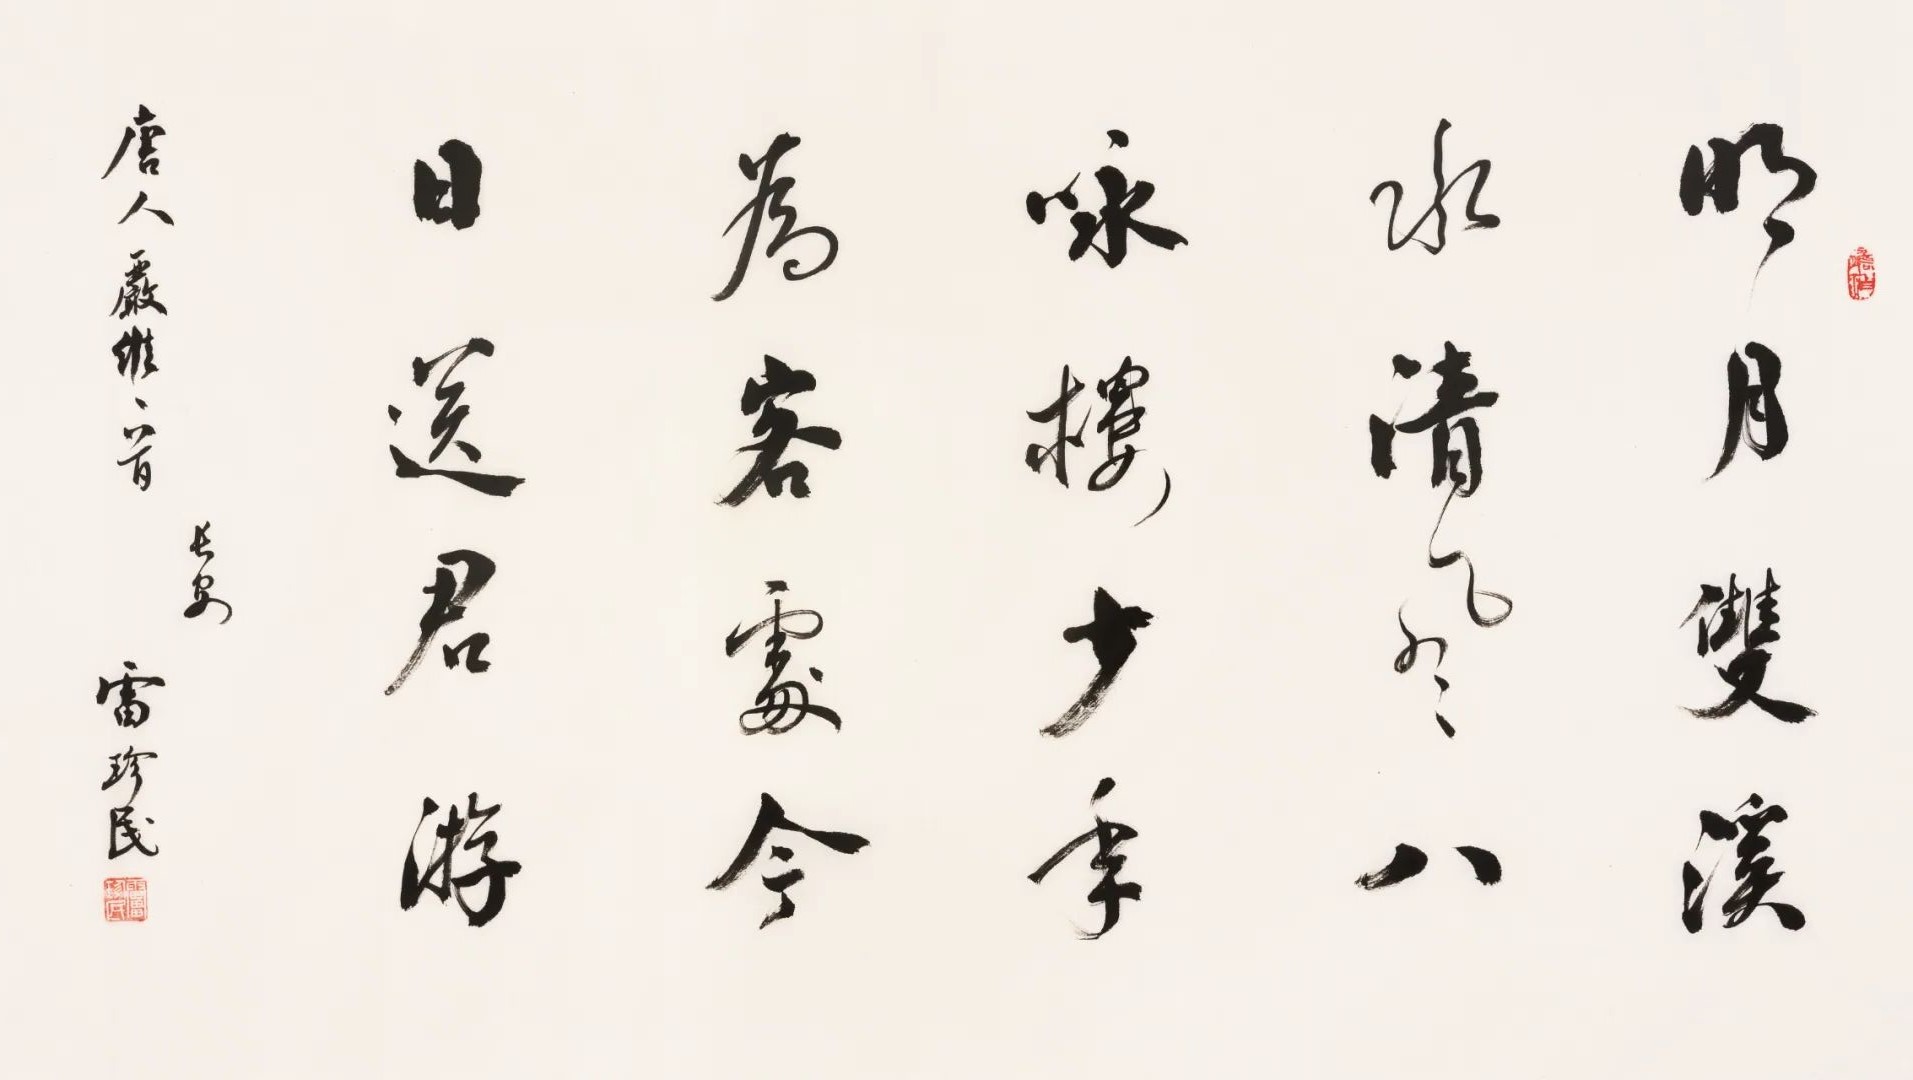 明月雙溪
水清風八
咏樓少年
為客處今
日送君游
唐人嚴維一首
長安
雷珍民
雷珍民